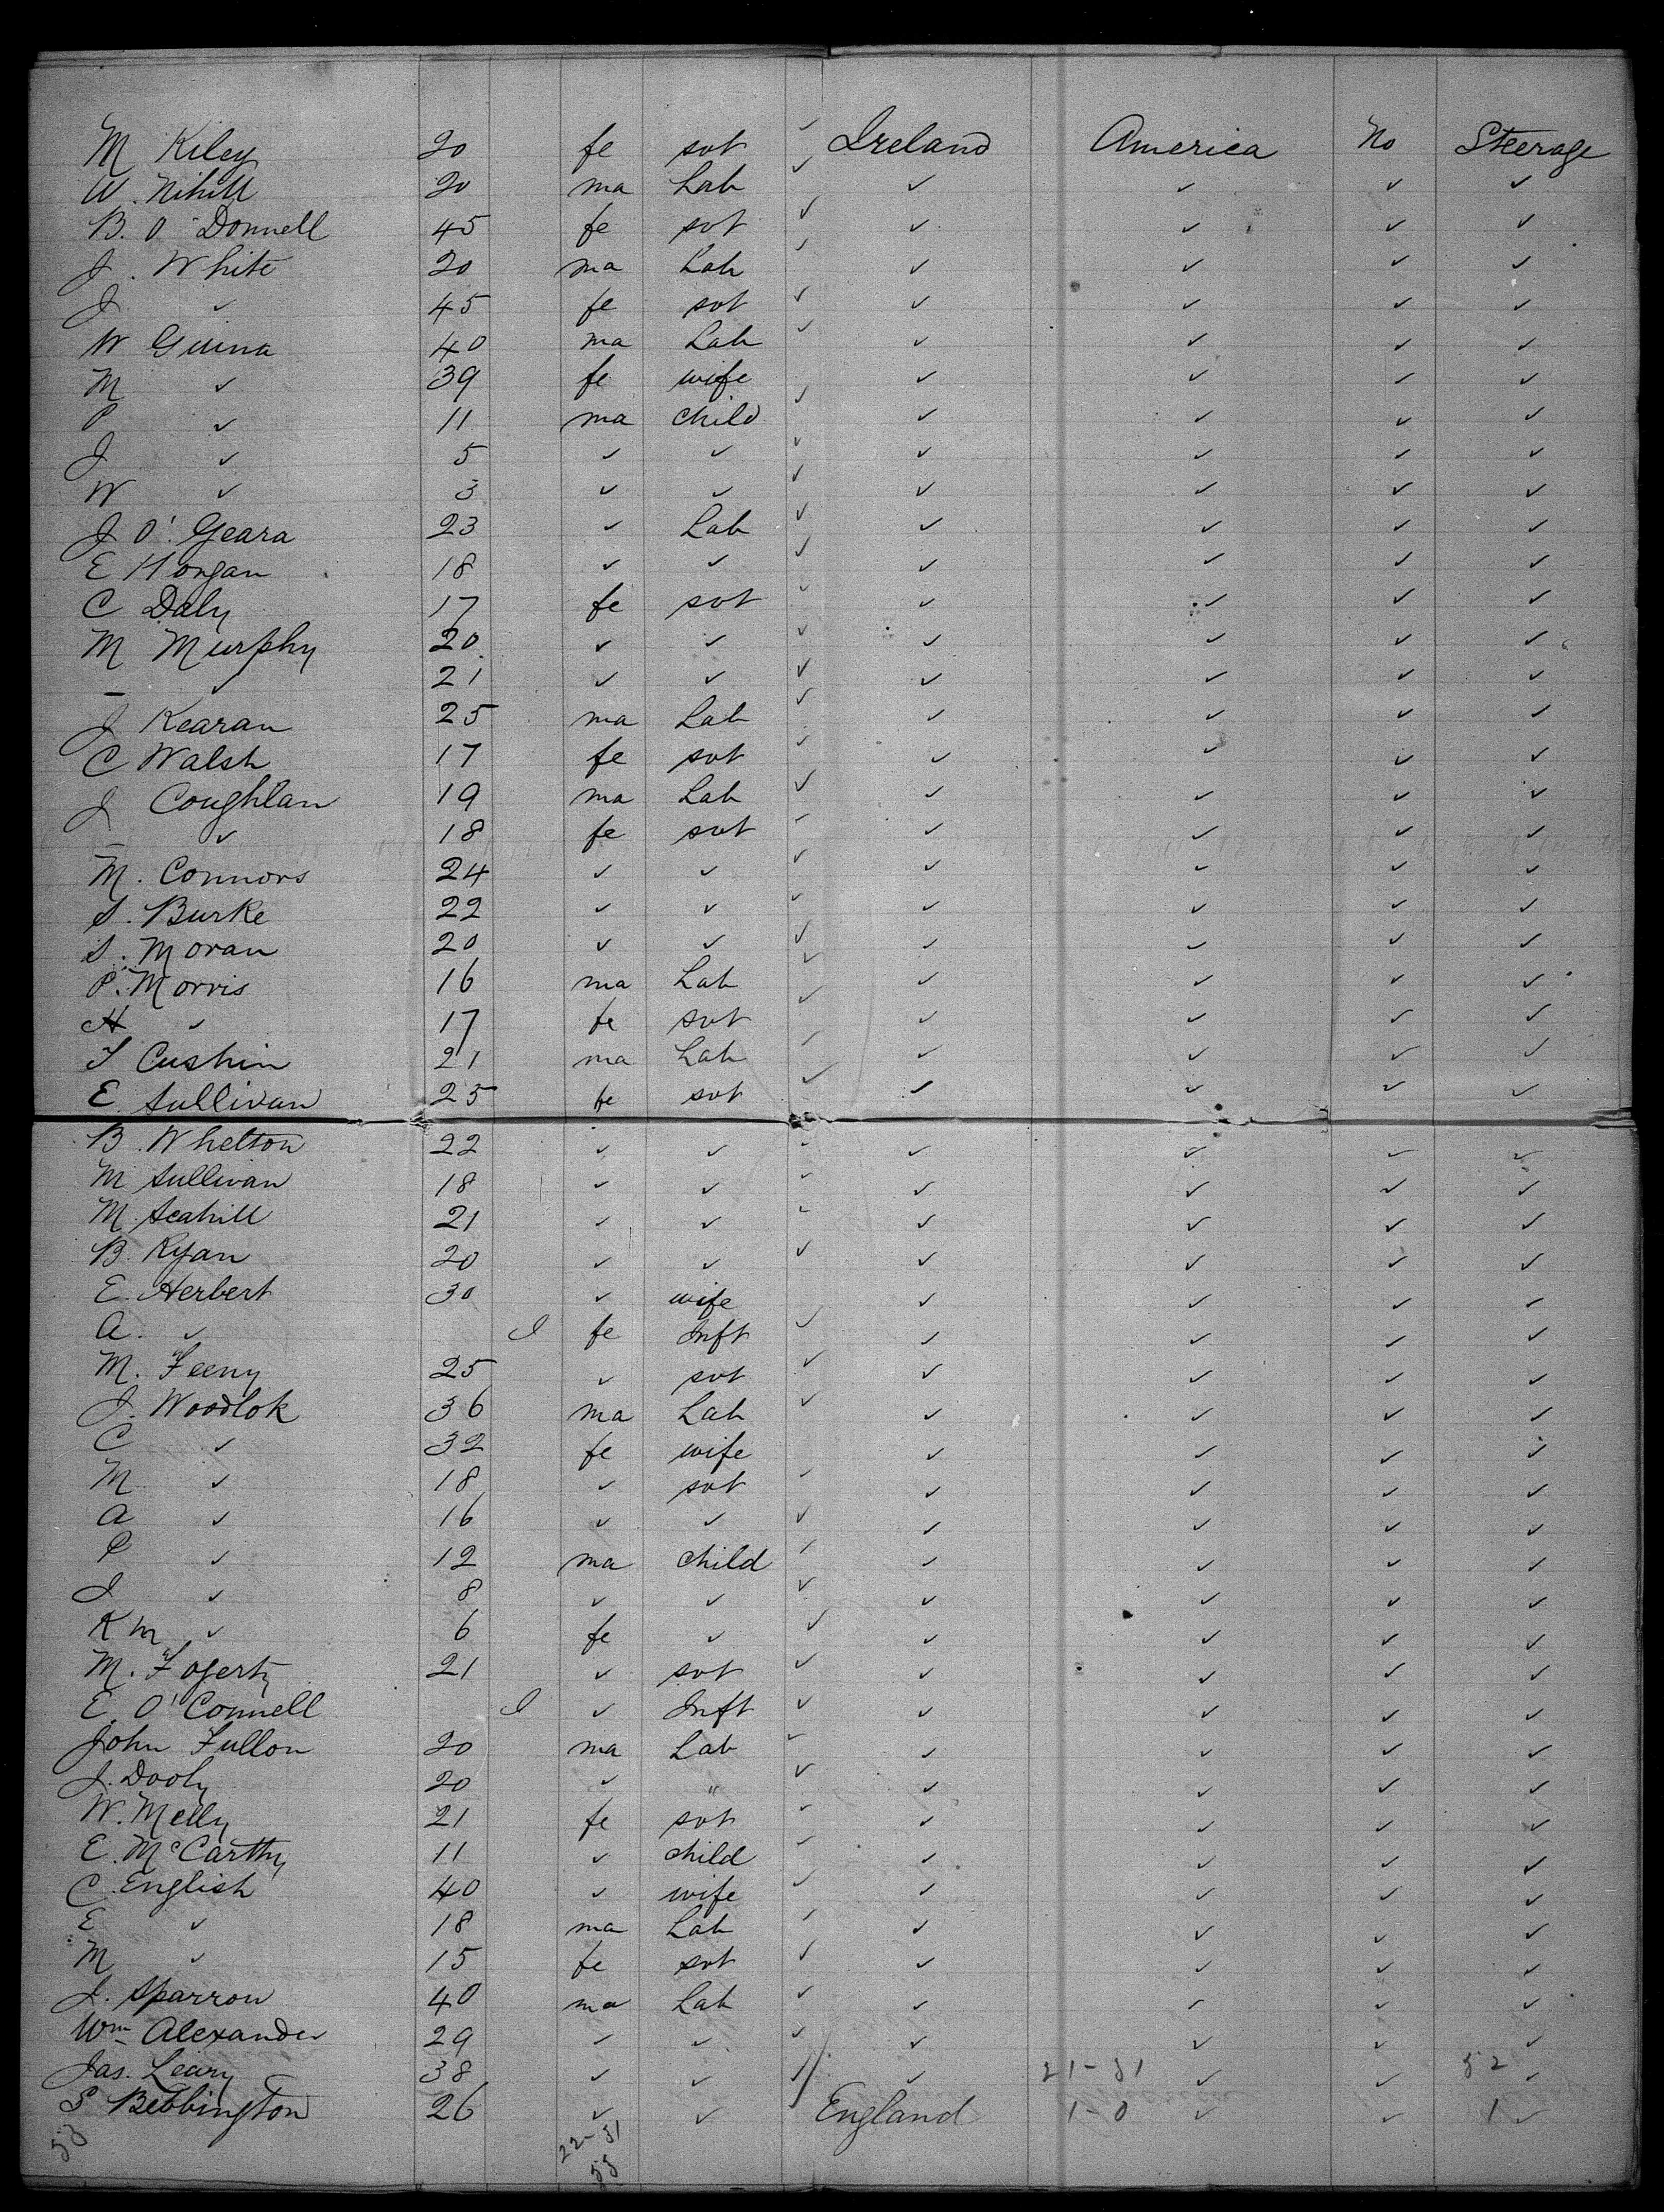 M Kiley 20 fe svt ✓ Ireland America No Steerage
W. Nihill 20 ma Lab ✓ ✓ ✓ ✓ ✓
B. O'Donnell 45 fe svt ✓ ✓ ✓ ✓ ✓
J. White 20 ma Lab ✓ ✓ ✓ ✓ ✓
J ✓ 45 fe svt ✓ ✓ ✓ ✓ ✓
W Guina 40 ma Lab ✓ ✓ ✓ ✓ ✓
M ✓ 39 fe wife ✓ ✓ ✓ ✓
P ✓ 11 ma child ✓ ✓ ✓ ✓ ✓
J ✓ 5 ✓ ✓ ✓ ✓ ✓ ✓ ✓
W ✓ 3 ✓ ✓ ✓ ✓ ✓ ✓ ✓
J O'Geara 23 ✓ Lab ✓ ✓ ✓ ✓ ✓
E Horgan 18 ✓ ✓ ✓ ✓ ✓ ✓ ✓
C Daly 17 fe svt ✓ ✓ ✓ ✓ ✓
M Murphy 20 ✓ ✓ ✓ ✓ ✓ ✓ ✓
– ✓ 21 ✓ ✓ ✓ ✓ ✓ ✓ ✓
J Kearan 25 ma Lab ✓ ✓ ✓ ✓ ✓
C Walsh 17 fe svt ✓ ✓ ✓ ✓ ✓
J Coughlan 19 ma Lab ✓ ✓ ✓ ✓ ✓
– ✓ 18 fe svt ✓ ✓ ✓ ✓ ✓
M. Connors 24 ✓ ✓ ✓ ✓ ✓ ✓ ✓
S. Burke 22 ✓ ✓ ✓ ✓ ✓ ✓ ✓
S. Moran 20 ✓ ✓ ✓ ✓ ✓ ✓ ✓
P. Morris 16 ma Lab ✓ ✓ ✓ ✓ ✓
H ✓ 17 fe svt ✓ ✓ ✓ ✓ ✓
T Cushin 21 ma Lab ✓ ✓ ✓ ✓ ✓
E Sullivan 25 fe svt ✓ ✓ ✓ ✓ ✓
B. Whelton 22 ✓ ✓ ✓ ✓ ✓ ✓ ✓
M Sullivan 18 ✓ ✓ ✓ ✓ ✓ ✓ ✓
M. Scahill 21 ✓ ✓ ✓ ✓ ✓ ✓ ✓
B. Ryan 20 ✓ ✓ ✓ ✓ ✓ ✓ ✓
E. Herbert 30 ✓ wife ✓ ✓ ✓ ✓
A. ✓ I fe Inft ✓ ✓ ✓ ✓ ✓
M. Feeny 25 ✓ svt ✓ ✓ ✓ ✓ ✓
J. Woodlok 36 ma Lab ✓ ✓ ✓ ✓ ✓
C ✓ 32 fe wife ✓ ✓ ✓ ✓
M ✓ 18 ✓ svt ✓ ✓ ✓ ✓ ✓
A ✓ 16 ✓ ✓ ✓ ✓ ✓ ✓ ✓
P ✓ 12 ma child ✓ ✓ ✓ ✓ ✓
J ✓ 8 ✓ ✓ ✓ ✓ ✓ ✓ ✓
K m ✓ 6 fe ✓ ✓ ✓ ✓ ✓ ✓
M. Fogerty 21 ✓ svt ✓ ✓ ✓ ✓ ✓
E. O'Connell I ✓ Inft ✓ ✓ ✓ ✓ ✓
John Fullon 20 ma Lab ✓ ✓ ✓ ✓ ✓
J. Dooly 20 ✓ " ✓ ✓ ✓ ✓ ✓
W. Melly 21 fe svt ✓ ✓ ✓ ✓ ✓
E. McCarthy 11 ✓ child ✓ ✓ ✓ ✓ ✓
C. English 40 ✓ wife ✓ ✓ ✓ ✓ ✓
E ✓ 18 ma Lab ✓ ✓ ✓ ✓ ✓
M ✓ 15 fe svt ✓ ✓ ✓ ✓ ✓
J. Sparrow 40 ma Lab ✓ ✓ ✓ ✓ ✓
Wm Alexander 29 ✓ ✓ ✓ ✓ ✓ ✓ ✓
Jas. Leary 38 ✓ ✓ ✓ ✓ 21-31 ✓ ✓ 52 ✓
S Bebbington 26 ✓ ✓ England 1-0 ✓ ✓ 1 ✓
53 22-31
53